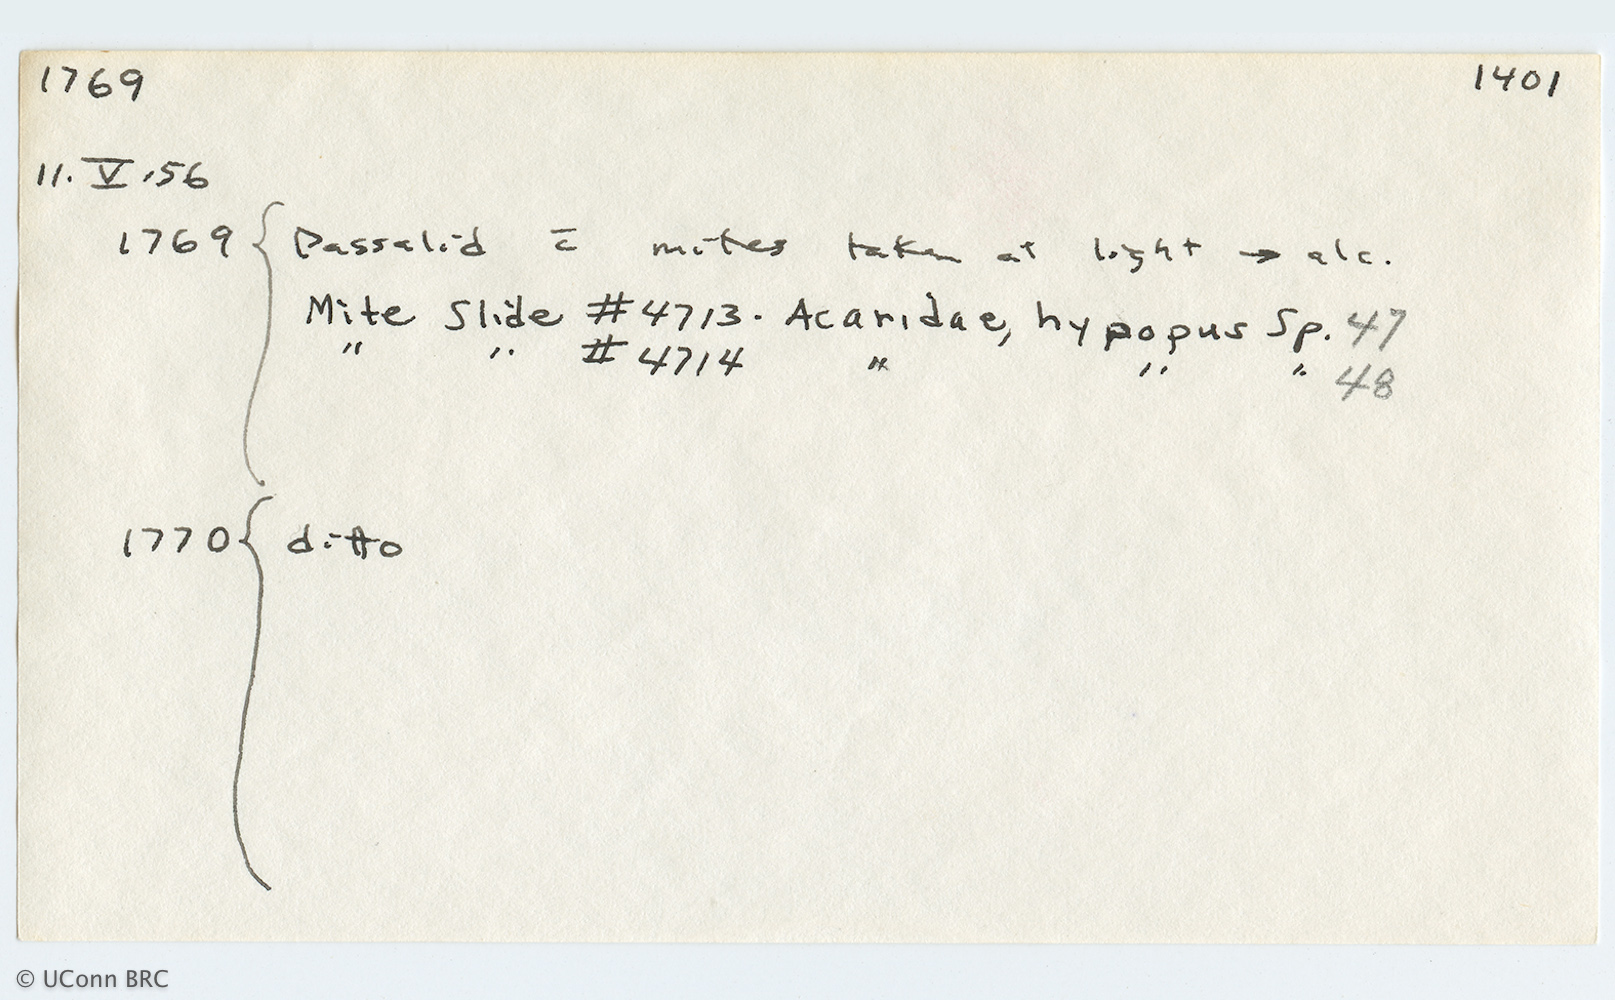 1769 1401
11.V.56
1769 { Passalid c̄ mites taken at light → alc.
Mite Slide #4713. Acaridae, hypopus Sp. 47
" " #4714 " " " 48
1770 { ditto
© UConn BRC